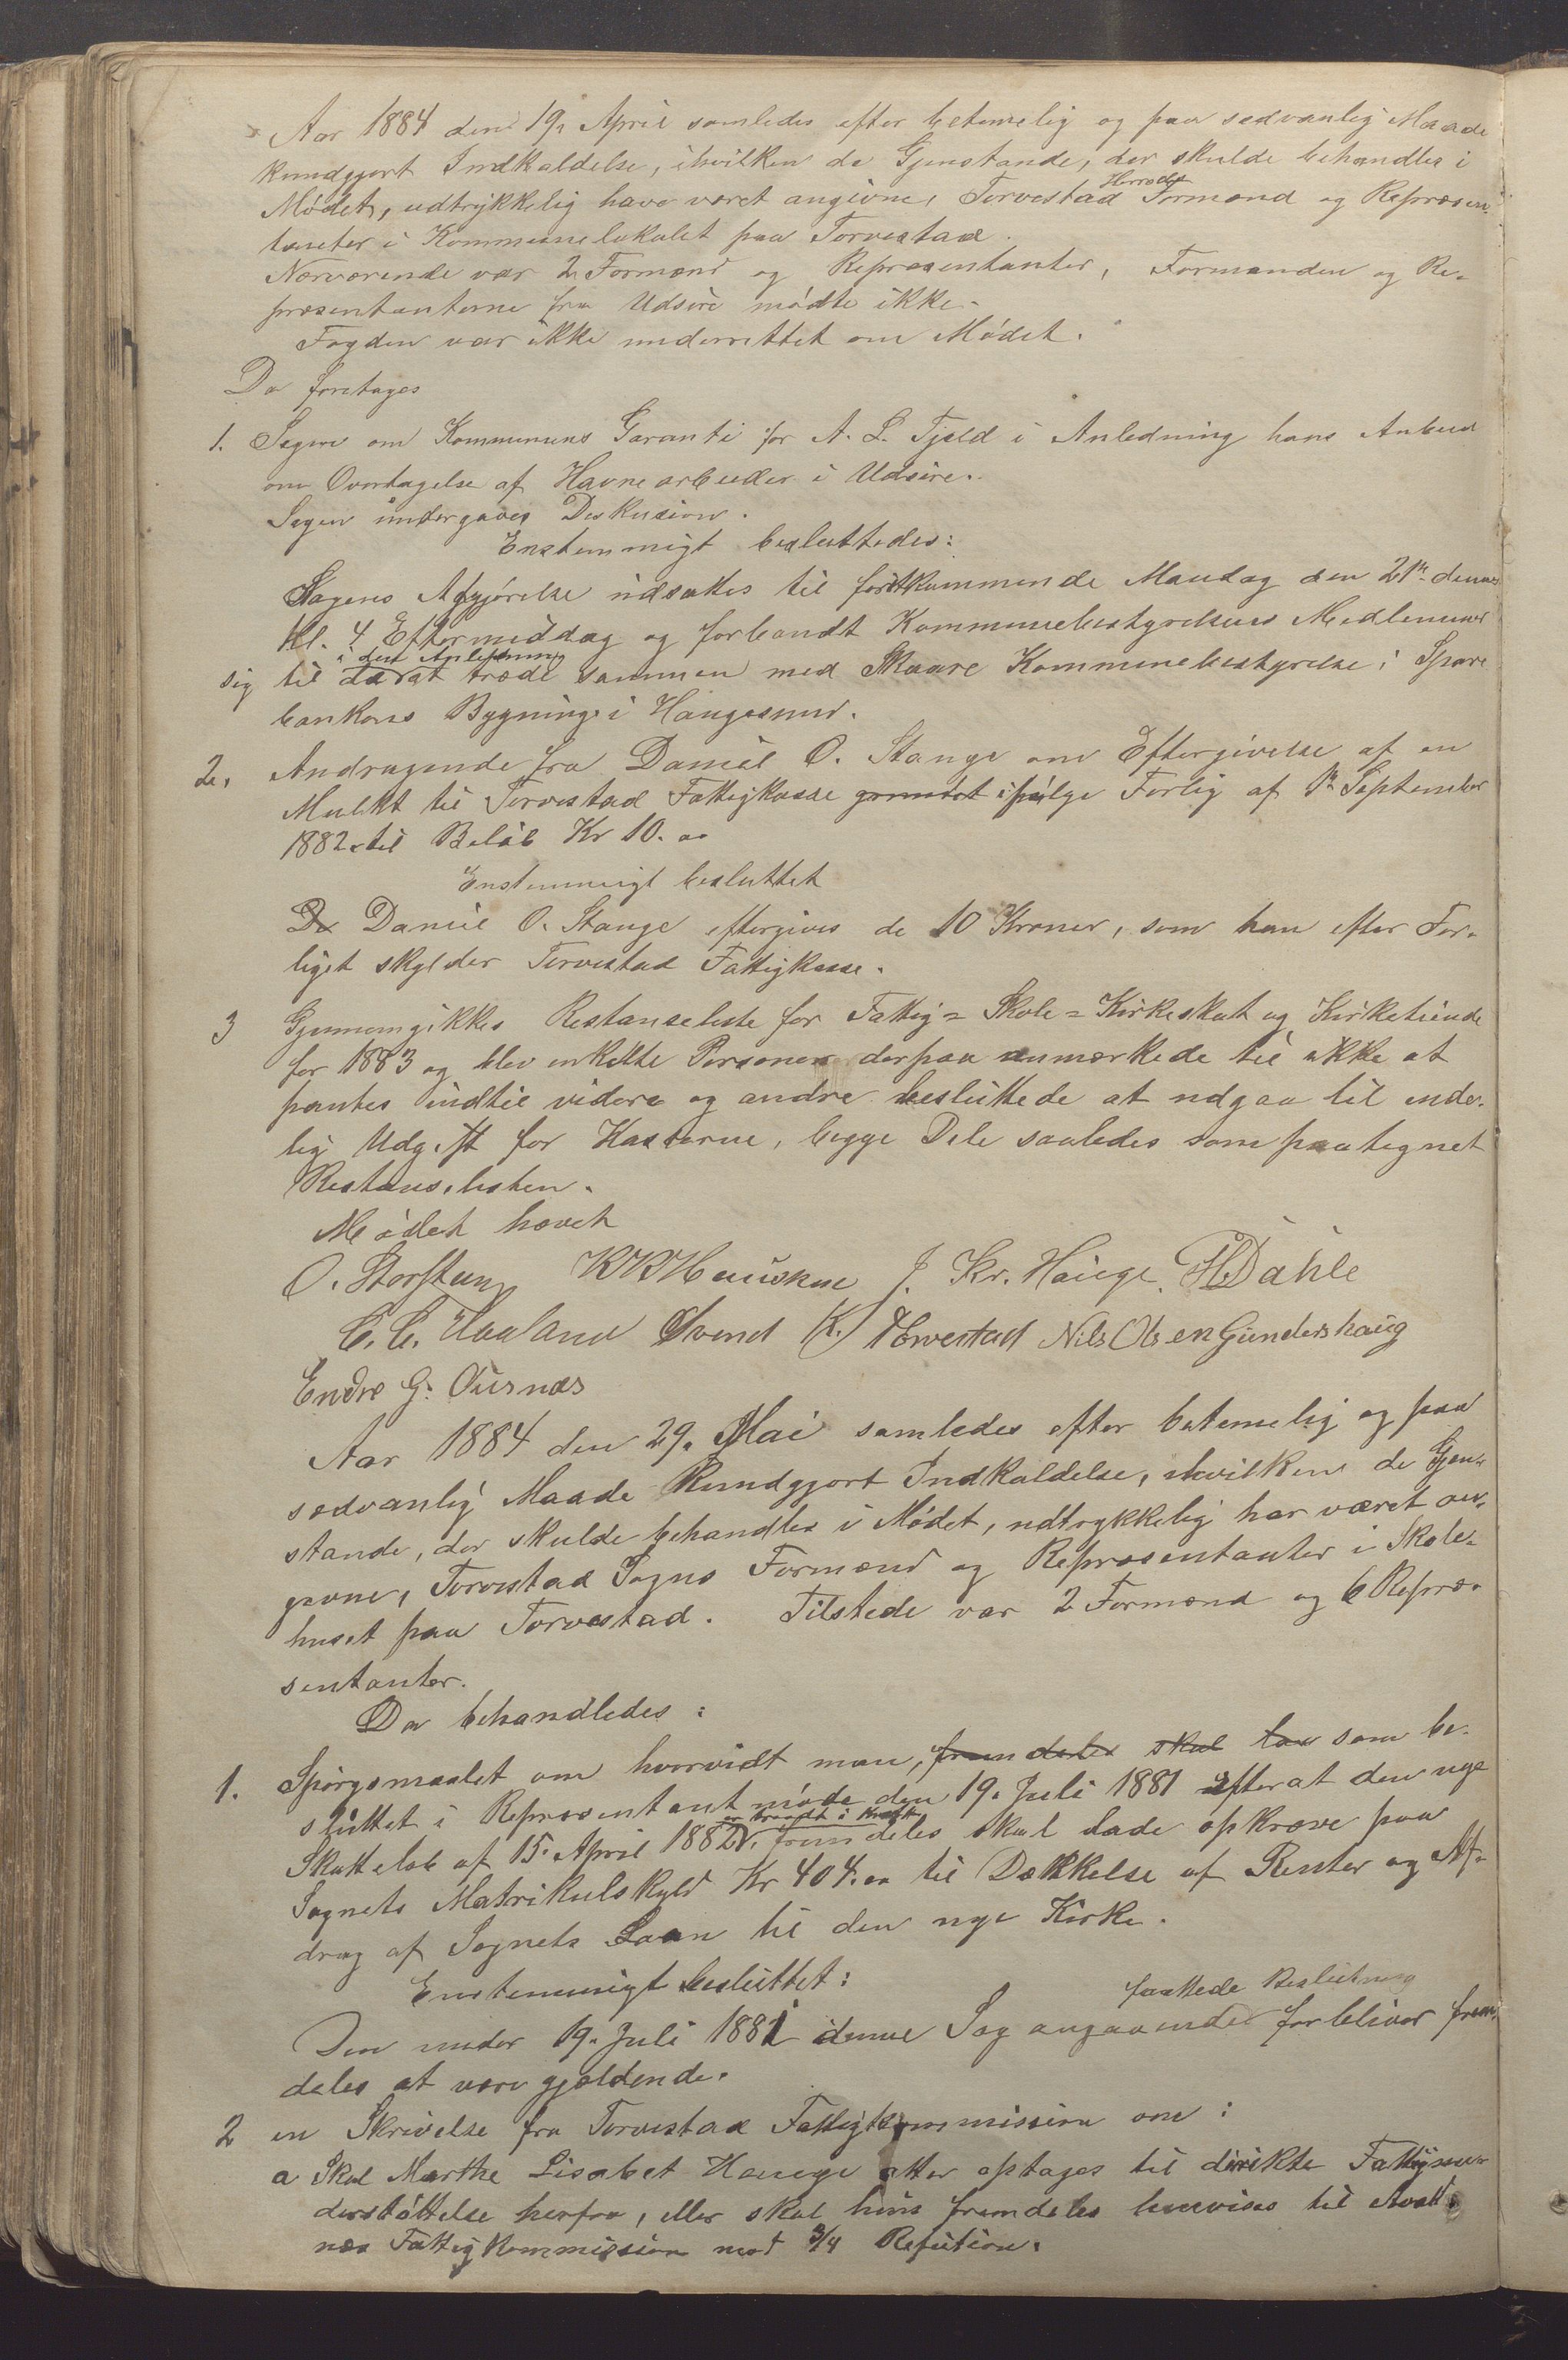 Aar 1884 den 19. April samledes efter betimelig og paa sedvanlig Maade
kundgjort Indkaldelse, ihvilken de Gjenstande, der skulde behandles i
Mødet, udtrykkelig have været angivne, Torvestad Herreds Formænd og Repræsen-
tanter i Kommunelokalet paa Torvestad.
Nærværende var 2 Formænd og Repræsentanter, Formanden og Re-
præsentanterne fra Udsire mødte ikke.
Fogden var ikke underrettet om Mødet.
Da foretages
1. Sagen om Kommunens Garanti for A. L. Fjeld i Anledning hans Anbud
om Overtagelse af Havnearbeider i Udsire.
Sagen undergaves Diskusion.
Enstemmigt besluttedes:
Sagens Afgjørelse udsattes til førstkommende Mandag den 21de dennes
Kl. 4 Eftermiddag og forbandt Kommunebestyrelsens Medlemmer
i den Anledning
sig til at træde sammen med Skaare Kommunebestyrelse i Spare
bankens Bygning i Haugesund.
2. Andragende fra Daniel O. Stange om Eftergivelse af en
Mulkt til Torvestad Fattigkasse grundet ifølge Forlig af 1te September
1882 til Beløb Kr 10.00
Enstemmigt besluttet
De Daniel O. Stange eftergives de 10 Kroner, som han efter For-
liget skylder Torvestad Fattigkasse.
3 Gjennemgikkes Restanseliste for Fattig= Skole= Kirkeskat og Kirketiende
for 1883 og blev enkelte Personer derpaa anmærkede til ikke at
pantes indtil videre og andre besluttede at udgaa til ende-
lig Udgift for Kasserne, begge Dele saaledes som paategnet
Restanselisten.
Mødet hævet
O. Storsteen K K Hauskne J. Kr. Hauge. H. Dahle
C. C. Haaland Svend K. Torvestad Nils Olsen Gundershaug
Endre G. Ousnæs
Aar 1884 den 29. Mai samledes efter betimelig og paa
sædvanlig Maade kundgjort Indkaldelse, ihvilken de Gjen-
stande, der skulde behandles i Mødet, udtrykkelig har været an-
givne, Torvestad Sogns Formænd og Repræsentanter i Skole-
huset paa Torvestad. Tilstede var 2 Formænd og 6 Repræ-
sentanter.
Da behandledes:
1. Spørgsmaalet om hvorvidt man, fremdeles skal lae som be-
sluttet i Repræsentantmøde den 19. Juli 1881 efterat den nye
Skattelov af 15. April 1882 er traadt i Kraft, fremdeles skal lade opkræve paa
Sognets Matrikulskyld Kr 404.00 til Dækkelse af Renter og Af-
drag af Sognets Laan til den nye Kirke.
Enstemmigt besluttet:
Den under 19. Juli 1881 denne Sag angaaende fattede Beslutning forbliver frem-
deles at være gjældende.
2 en Skrivelse fra Torvestad Fattigkommission om:
a Skal Marthe Lisabet Hauge atter optages til direkte Fattigun-
derstøttelse herfra, eller skal hun fremdeles henvises til Avalds-
næs Fattigkommission mod 3/4 Refution.